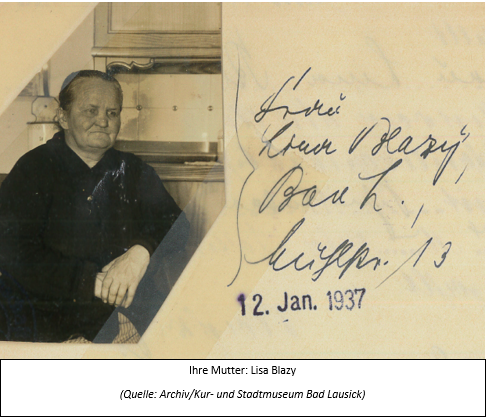 Frau
Lina Blazy,
Bad L.,
Mühlstr. 13
12. Jan. 1937
Ihre Mutter: Lisa Blazy
(Quelle: Archiv/Kur- und Stadtmuseum Bad Lausick)